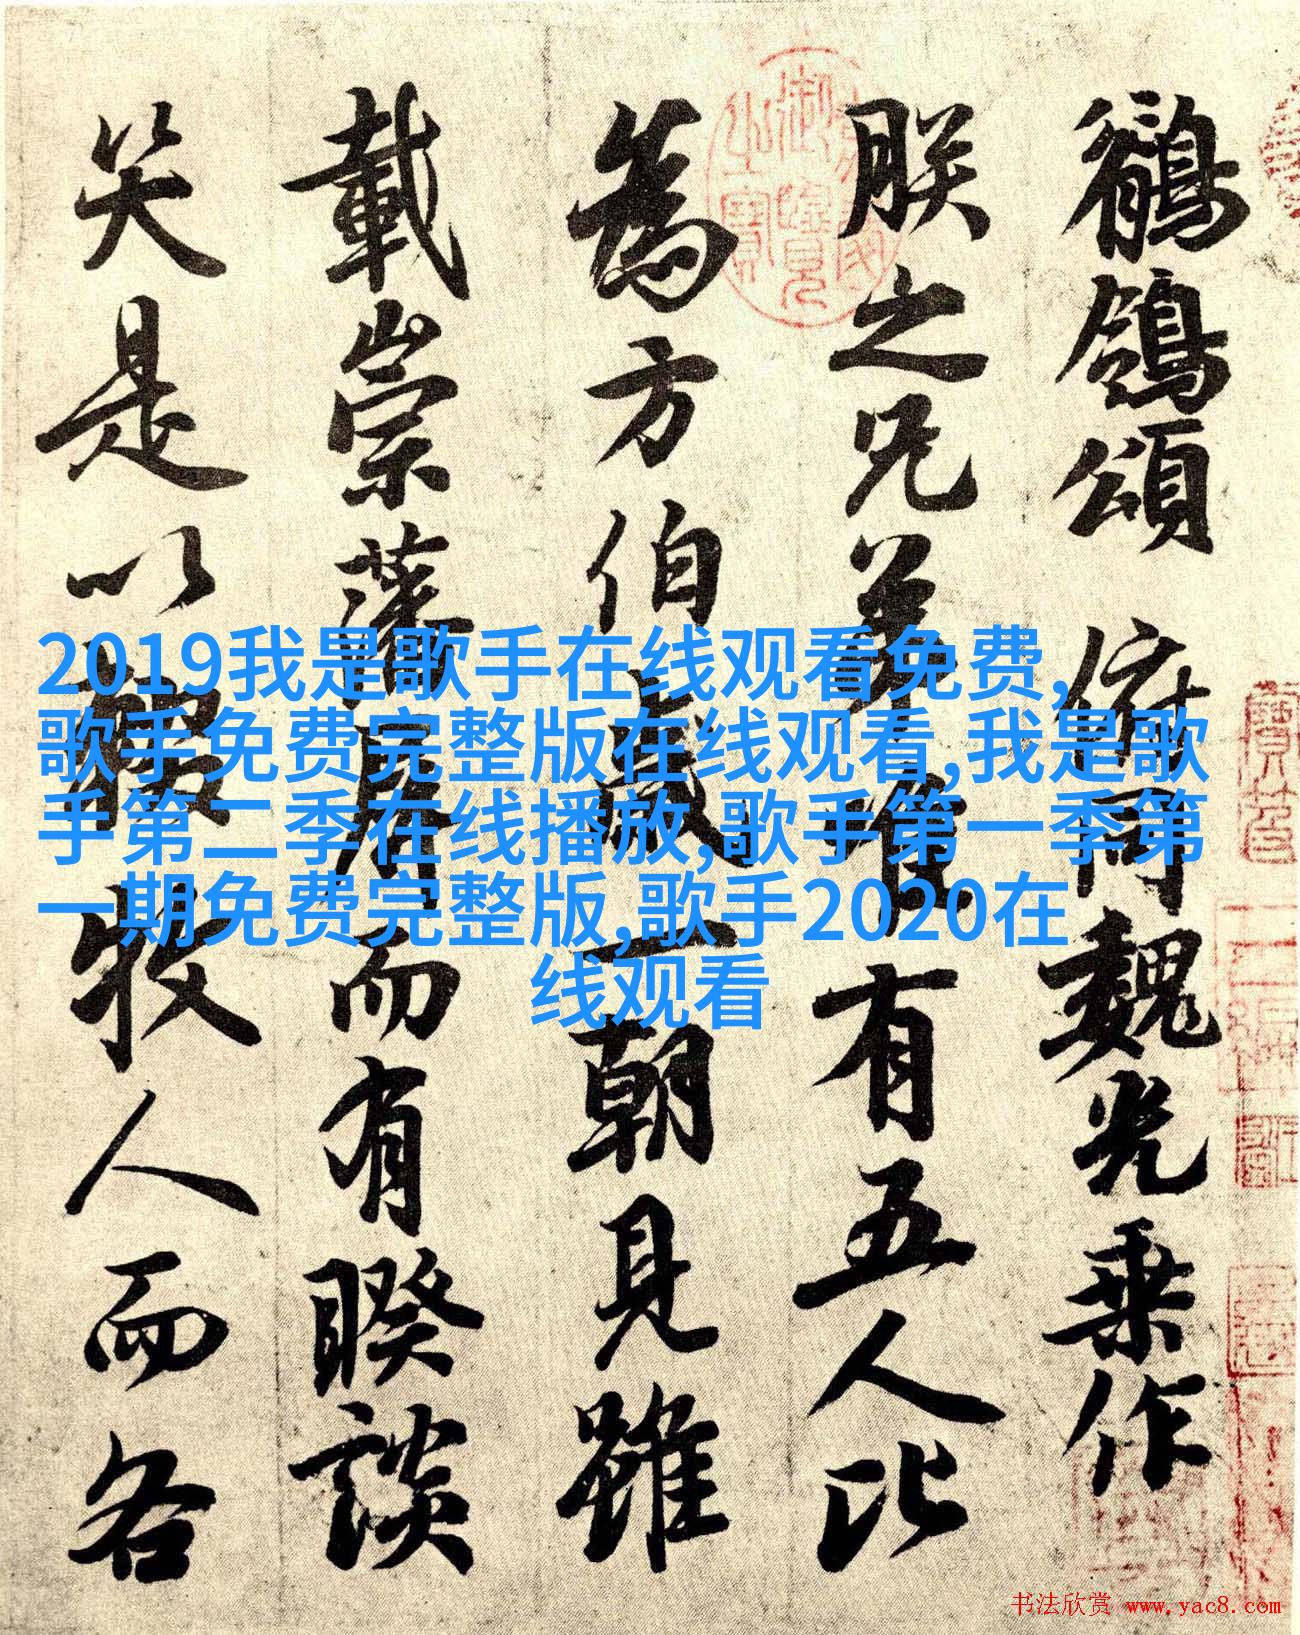 鶺鴒頌 俯同魏光乘作
朕之兄弟唯有五人比
為方伯歲一朝見雖
載崇藩屏而有睽談
笑是以輟牧人而各
2019我是歌手在线观看免费,
歌手免费完整版在线观看,我是歌
手第二季在线播放,歌手第一季第
一期免费完整版,歌手2020在
线观看
书法欣赏 www.yac8.com